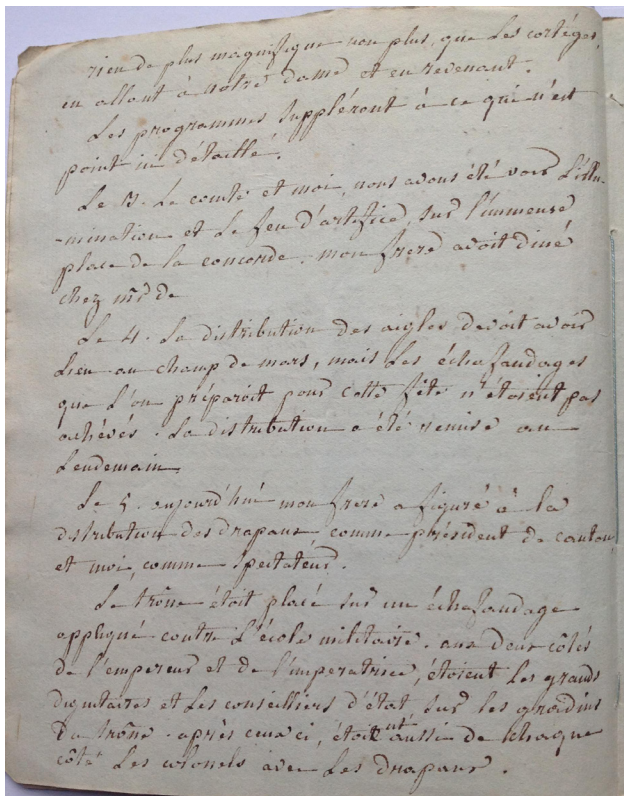 rien de plus magnifique non plus, que les cortéges,
en allant à notre dame et en revenant.
Les programmes suppléront à ce qui n'est
point ici détaillé.
Le 3. Le comte et moi, nous avons été voir l'illu-
-mination et le feu d'artifice, sur l'immense
place de la concorde. mon frere avoit diné
chez md de
Le 4. La distribution des aigles devoit avoir
lieu au champ de mars, mais les échafaudages
que l'on préparoit pour cette fête n'étoient pas
achevés. La distribution a été remise au
Lendemain
Le 5. aujourd'hui mon frere a figuré à la
distribution des drapaux, comme président de canton,
et moi, comme spectateur.
Le trône étoit placé sur un échafaudage
appliqué contre l'école militaire. aux deux côtés
de l'empereur et de l'imperatrice, étoient les grands
dignitaires et les conseilliers d'état, sur les gradins
du trône. après ceux ci, étoient aussi de chaque
côté les colonels avec les drapaux.